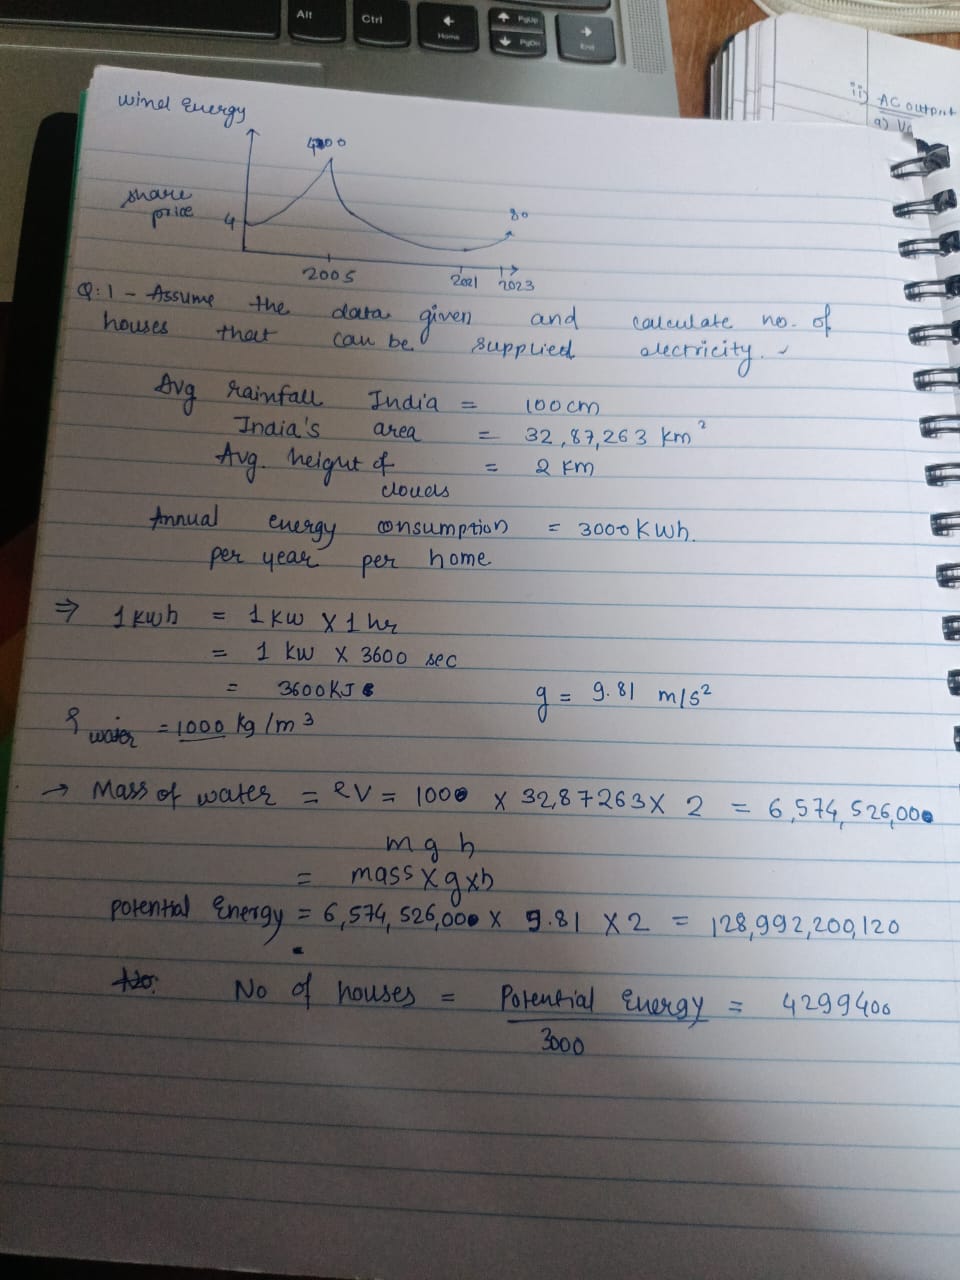 Alt
Ctrl
Home
PgUp
PgDn
End
ii) AC output
a)
wind Energy
share
price
4
80
2005
2021
2023
Q:1 - Assume the data given and calculate no. of
houses that can be supplied electricity.
Avg rainfall India = 100cm
India's area = 32,87,263 km²
Avg. height of = 2 km
clouds
Annual energy consumption = 3000 kwh.
per year per home
⇒ 1 kwh = 1 kw x 1 hr
= 1 kw x 3600 sec
= 3600 KJ
g = 9.81 m/s²
ρ water = 1000 kg/m³
→ Mass of water = ρV = 1000 x 32,87263 x 2 = 6,574,526,000
mgh
= mass x g x h
potential Energy = 6,574,526,000 x 9.81 x 2 = 128,992,200,120
No of houses = Potential Energy = 4299400
3000